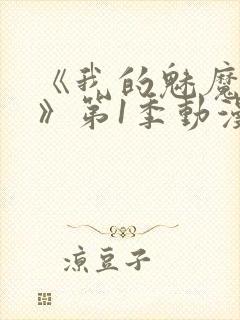 《我的魅魔
》第1季動漫
涼豆子